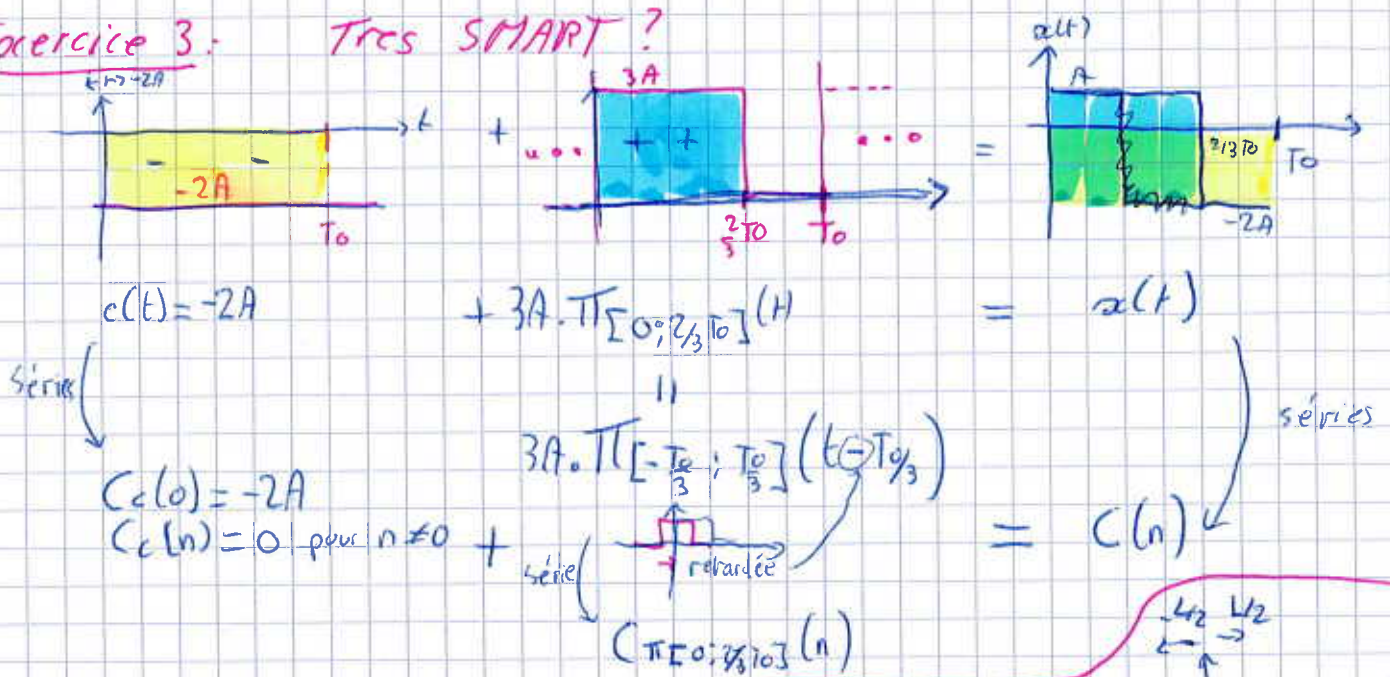 Exercice 3: Tres SMART ?
t ↦ -2A
3A
x(t)
A
t
+
=
-2A
2/3 T0
T0
T0
2/3 T0
T0
-2A
c(t) = -2A + 3A. Π[0; 2/3 T0](t) = x(t)
séries
=
séries
3A. Π[-T0/3 ; T0/3](t - T0/3)
Cc(0) = -2A
Cc(n) = 0 pour n ≠ 0 + = C(n)
série retardée
CΠ[0; 2/3 T0](n)
-L/2 L/2